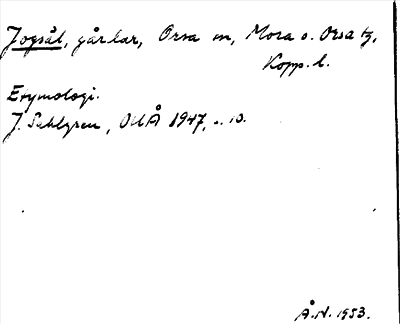 Jogsål, gårdar, Orsa sn, Mora o. Orsa tg,
Kopp. l.
Etymologi.
J. Sahlgren, OUÅ 1947, s. 10.
Å.N. 1953.